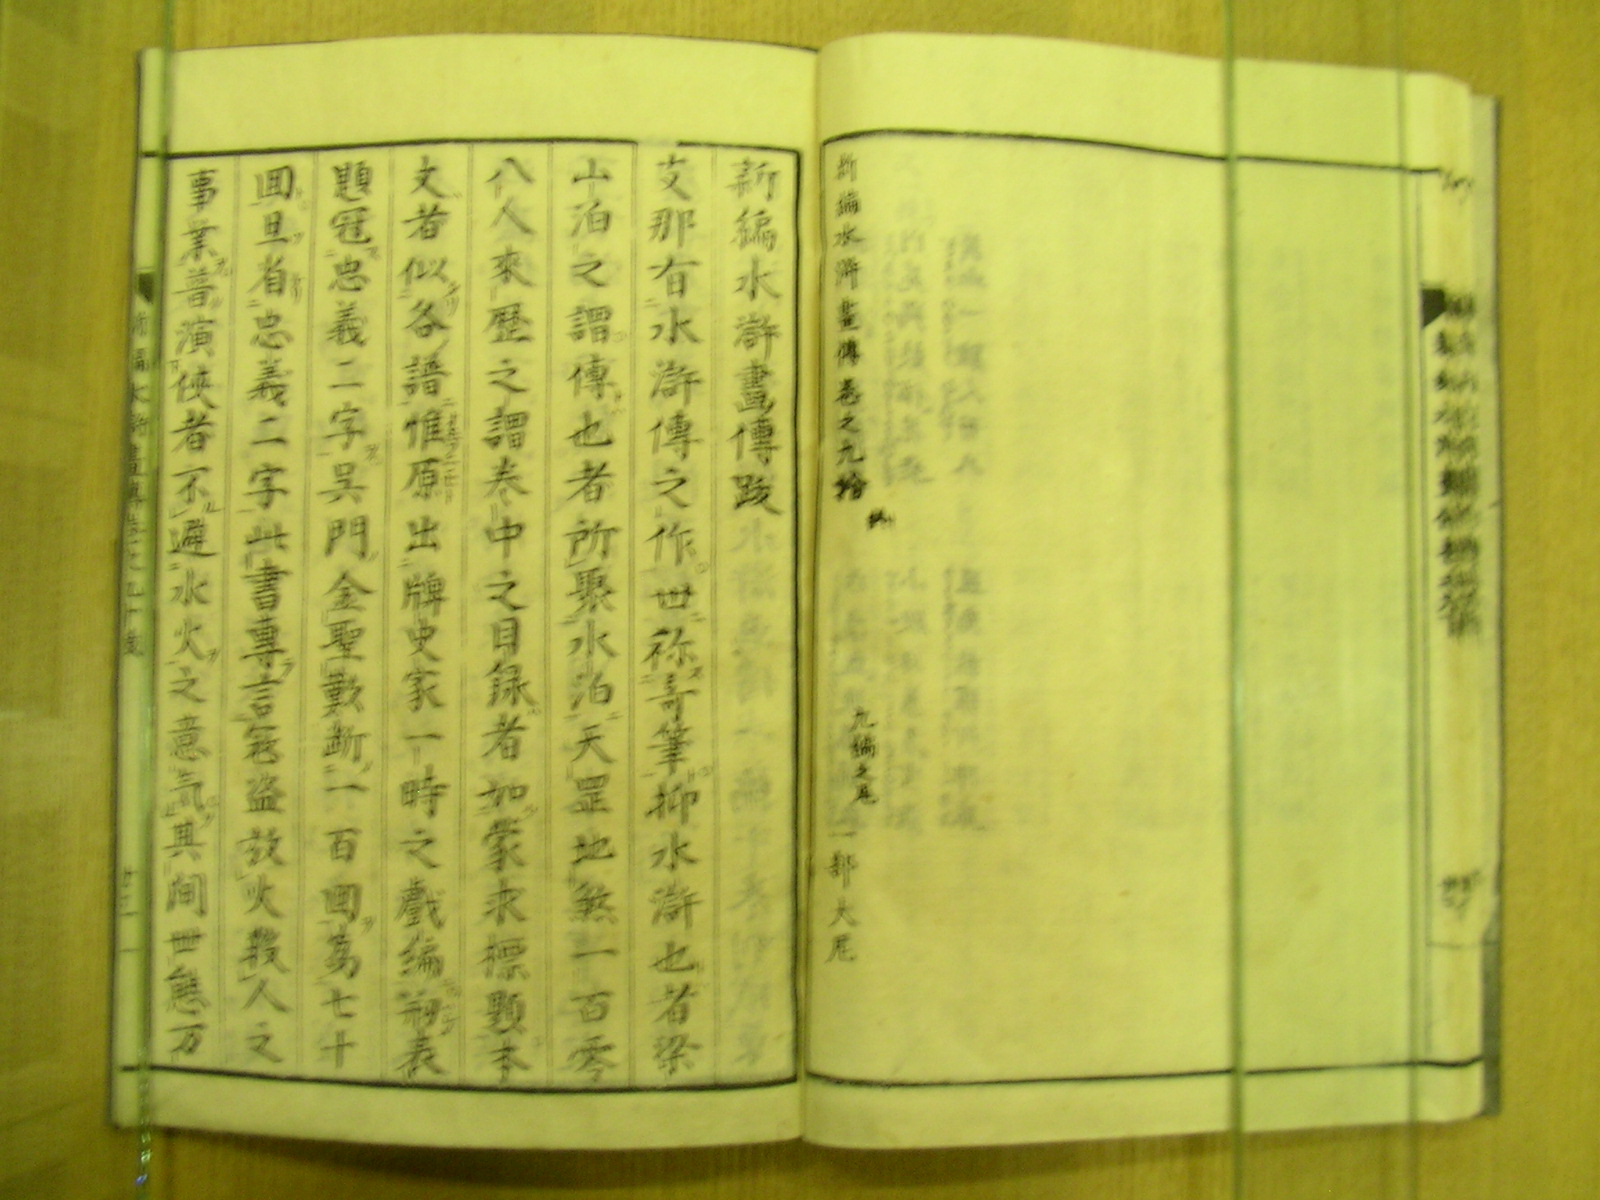 新編水滸畫傳卷之九拾
終
九編之尾
一部大尾
新編水滸畫傳跋
爰那有水滸傳之作世称奇筆抑水滸也者梁
山泊之謂傳也者所聚水泊天罡地煞一百零
八人來歴之謂卷中之目録者如蒙求標題本
文者似各譜惟原出牌史家一時之戲編初表
題冠忠義二字呉門金聖歎断一百回為七十
回且省忠義二字此書專言冦盗放火殺人之
事業普演俠者不避水火之意気其間世態万
新編水滸畫傳卷之九十